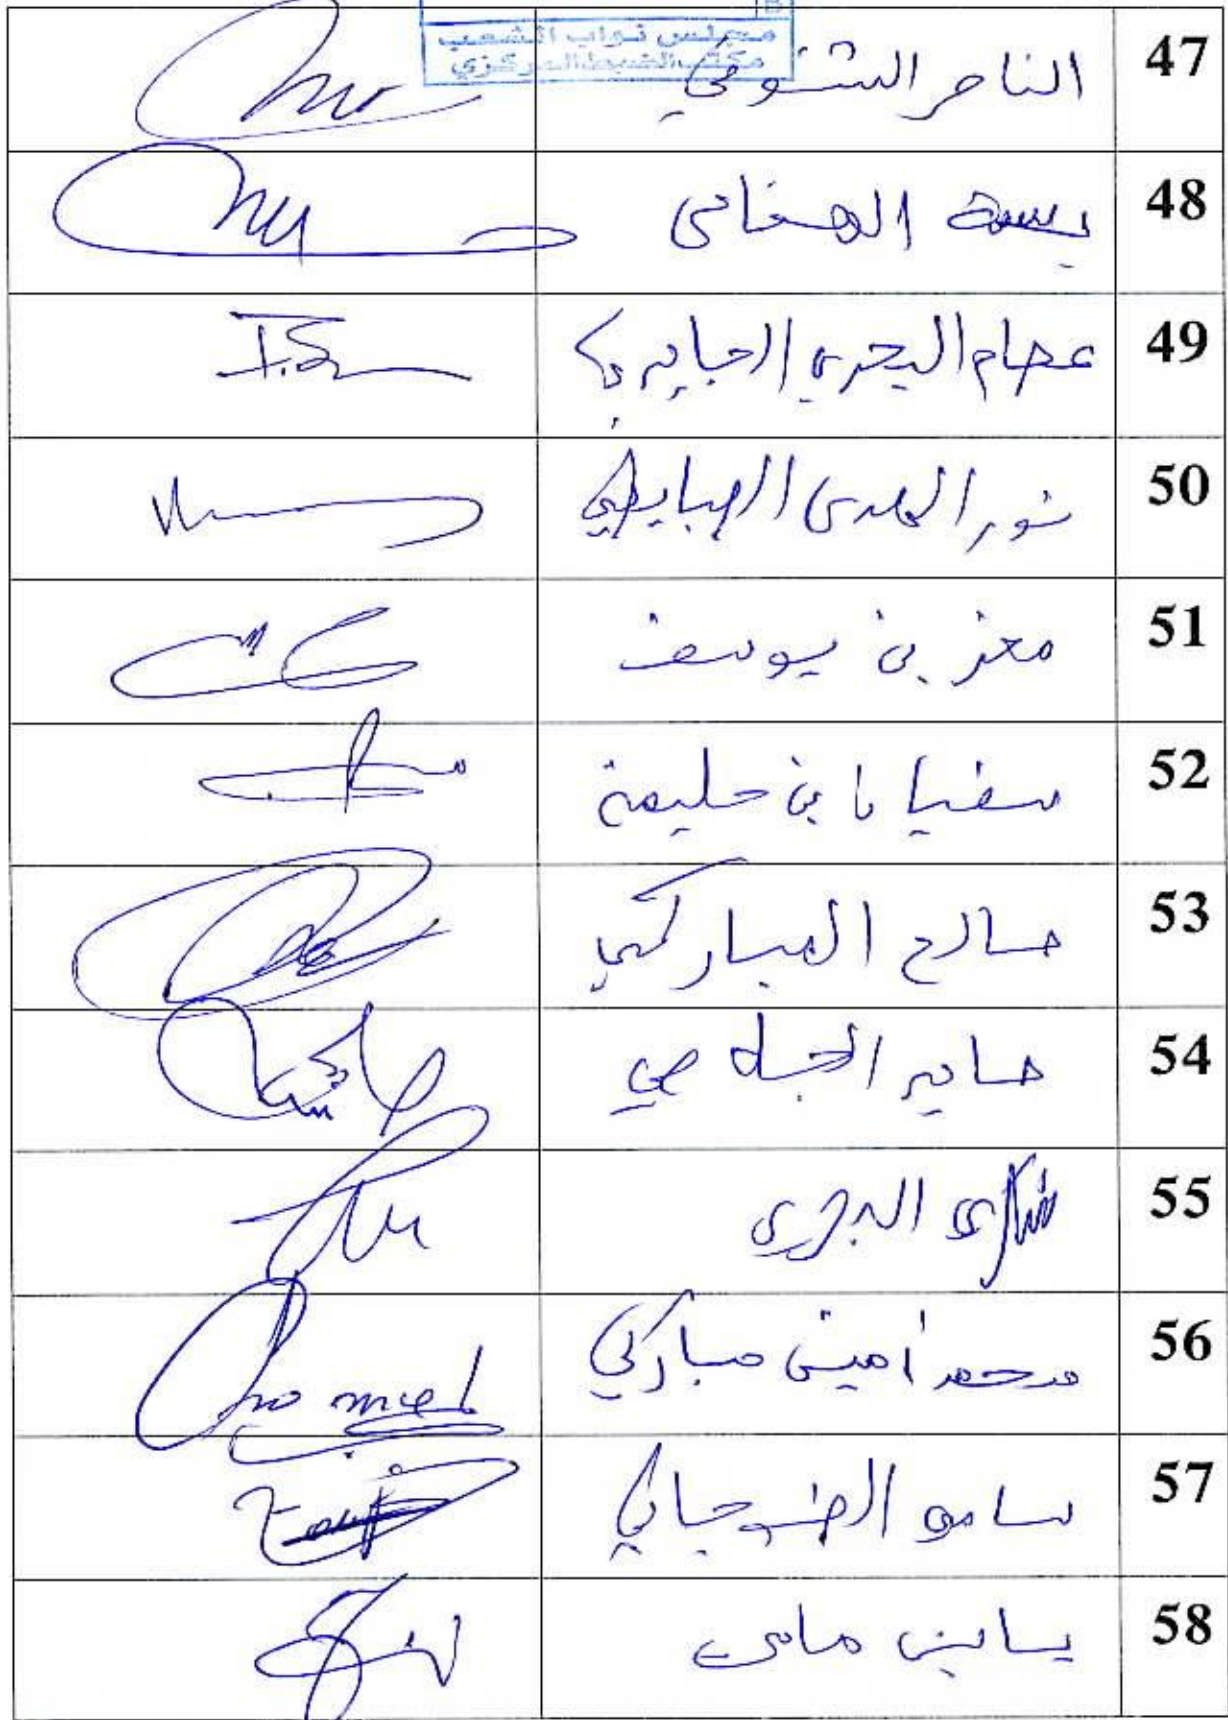 مجلس نواب الشعب
مكتب الضبط المركزي
47 الناصر الشنوفي
48 بسمة الهمامي
49 عصام البحري الجابري
50 نور الهدى السبايطي
51 معز بن يوسف
52 سفيان بن حليمة
53 صالح المباركي
54 صابر الجلاصي
55 شكري البحري
56 محمد أمين مباركي
57 سامي الطوجاني
58 ياسين مامي